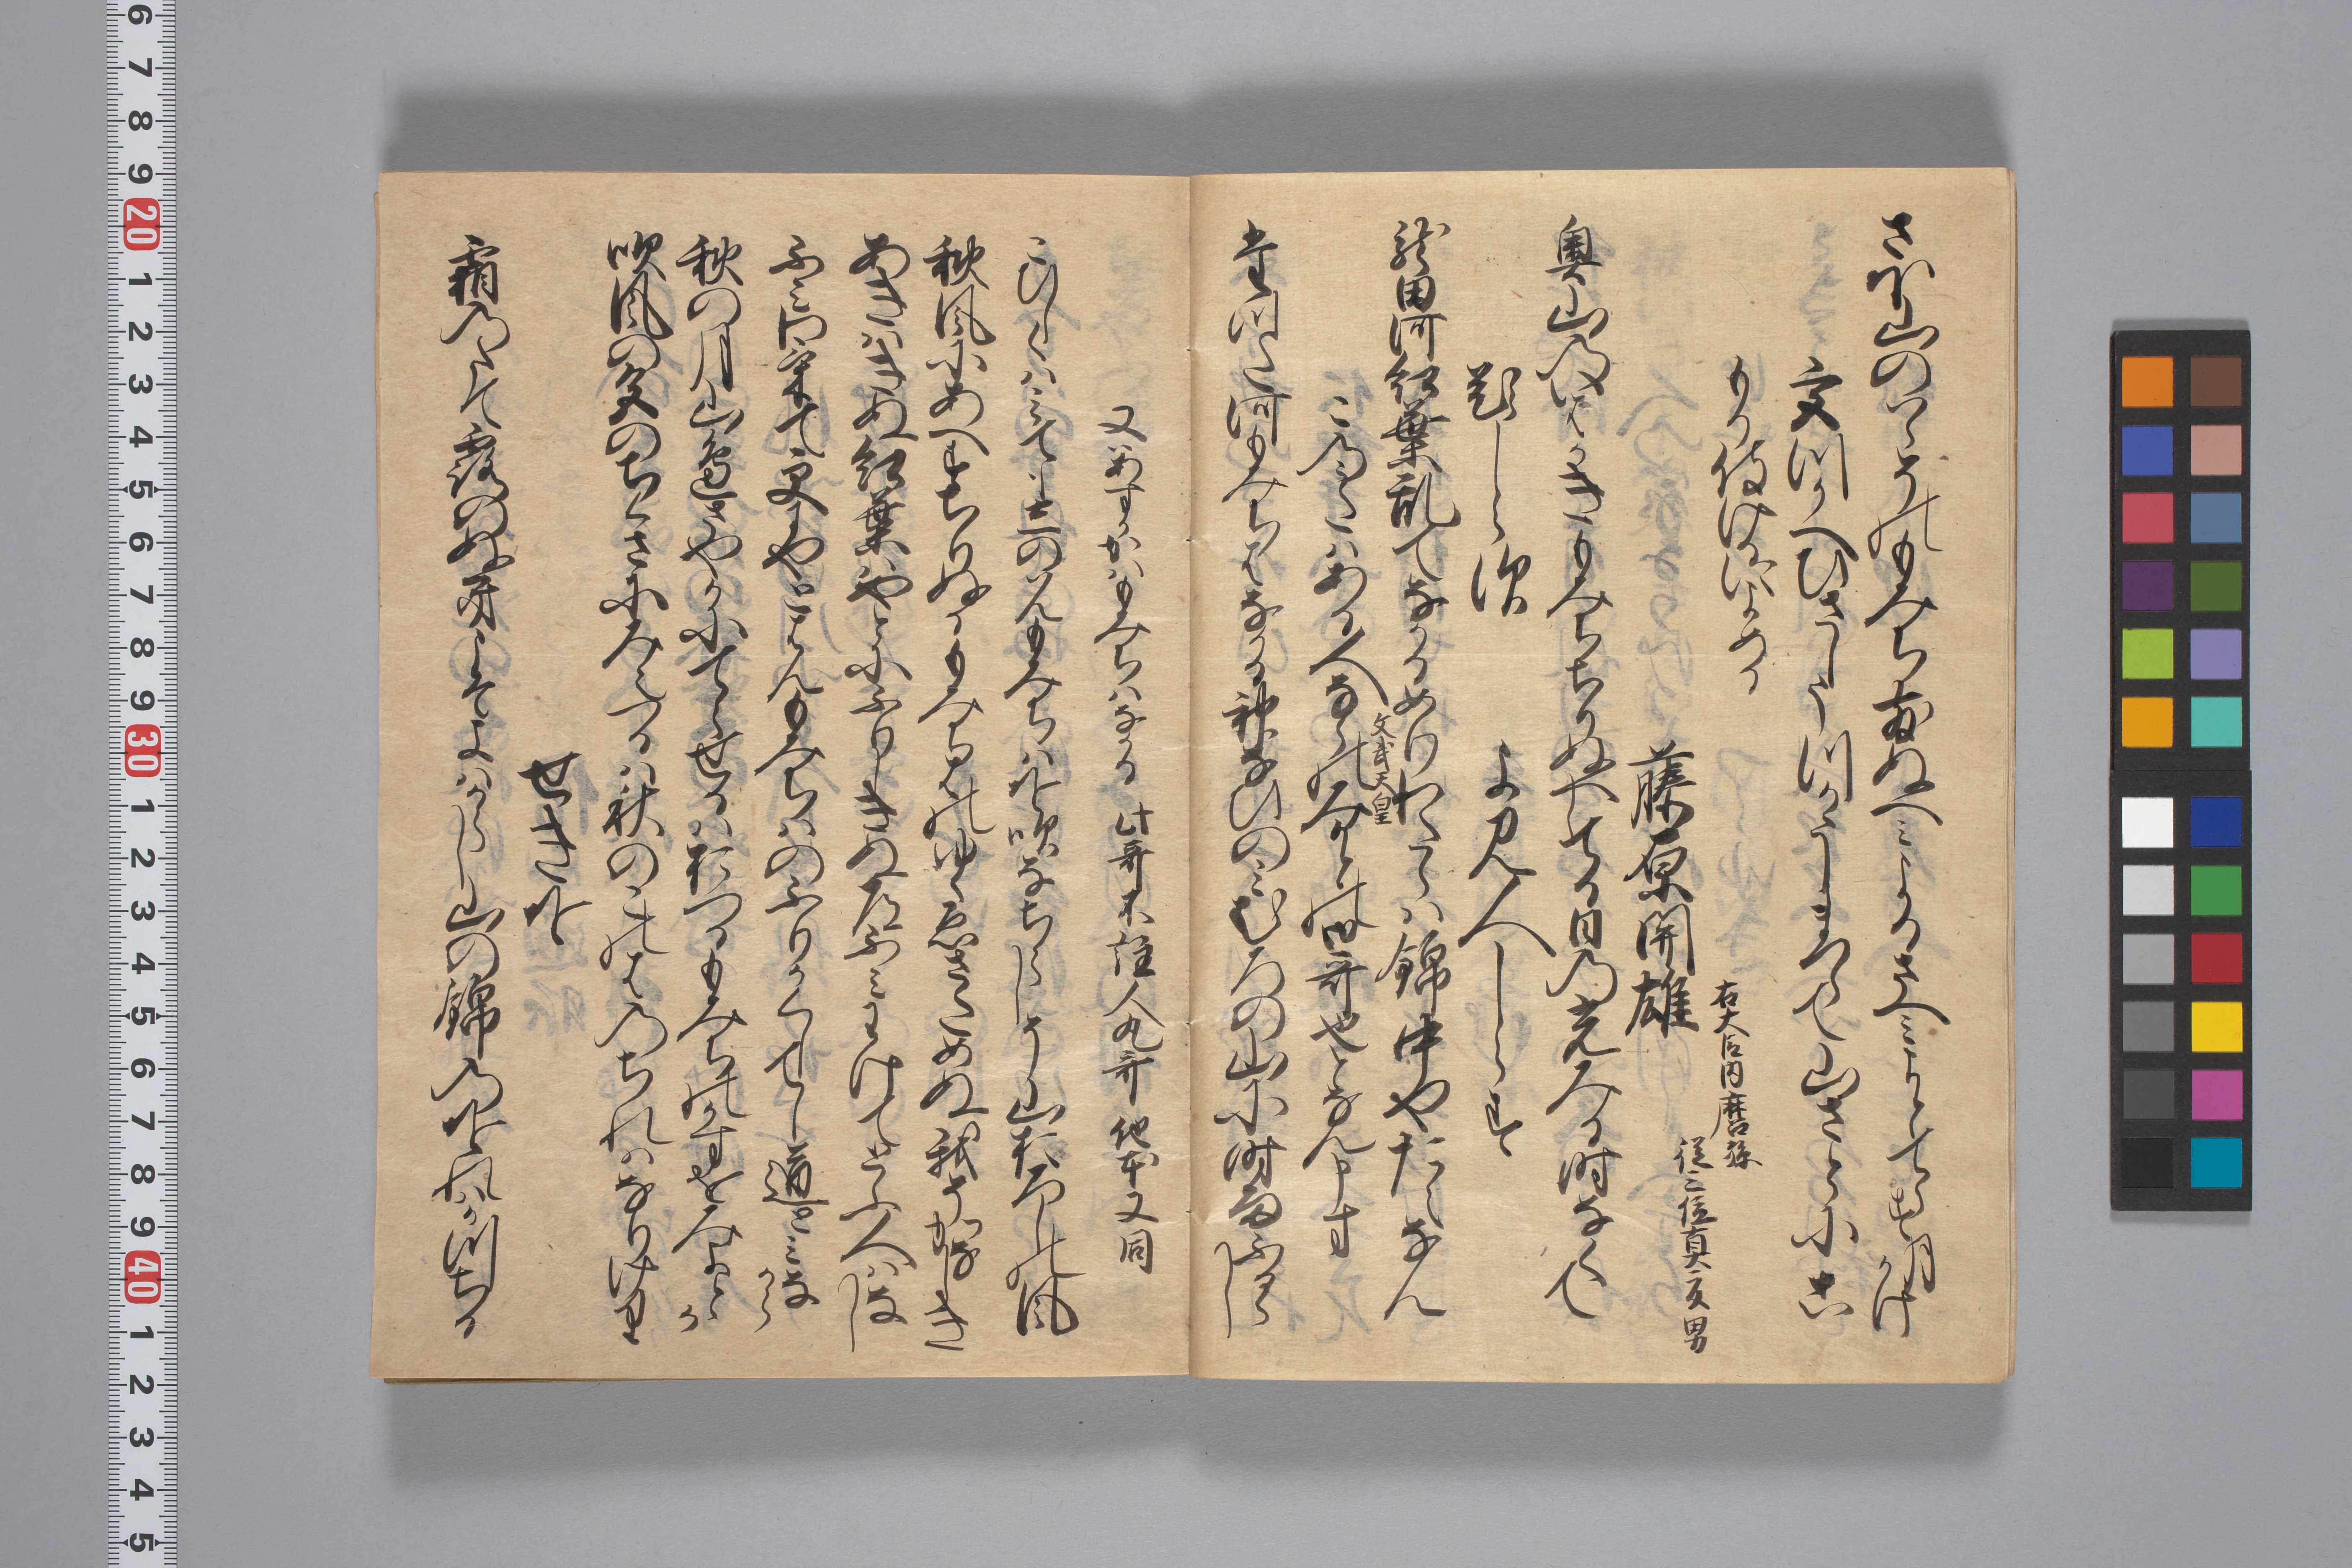 さほ山のはゝそのもみちちりぬへみよるさへみよとてらす月かけ
宮つかへひさしうつかうまつらて山さとにこ
もり侍けるによめる
藤原関雄
右大臣内麿孫
従三位真夏男
奥山のいはかきもみちちりぬへしてる日の光みる時なくて
題しらす
よみ人しらす
龍田河紅葉乱てなかるめりわたらは錦中やたえなん
この哥はある人ならのみかとの御哥也となん申す
文武天皇
立田河もみちはなかる神なひのみむろの山に時雨ふるらし
又はあすかゝはもみちはなかる
此哥不注人丸哥他本又同
こひしくはみてもしのはんもみちはを吹なちらしそ山おろしの風
秋風にあへすちりぬるもみちはのゆくゑさためぬ我そかなしき
あきはきぬ紅葉はやとにふりしきぬ道ふみわけてとふ人はなし
ふみわけて更にやとはんもみちはのふりかくしてし道とみな
からゝ
秋の月山邊さやかにてらせるは落つるもみちのかすをみよと
か
吹風の色のちくさにみえつるは秋のこのはのちれはなりけり
せきを
霜のたて露のぬきこそよはからし山の錦のおれはかつちる